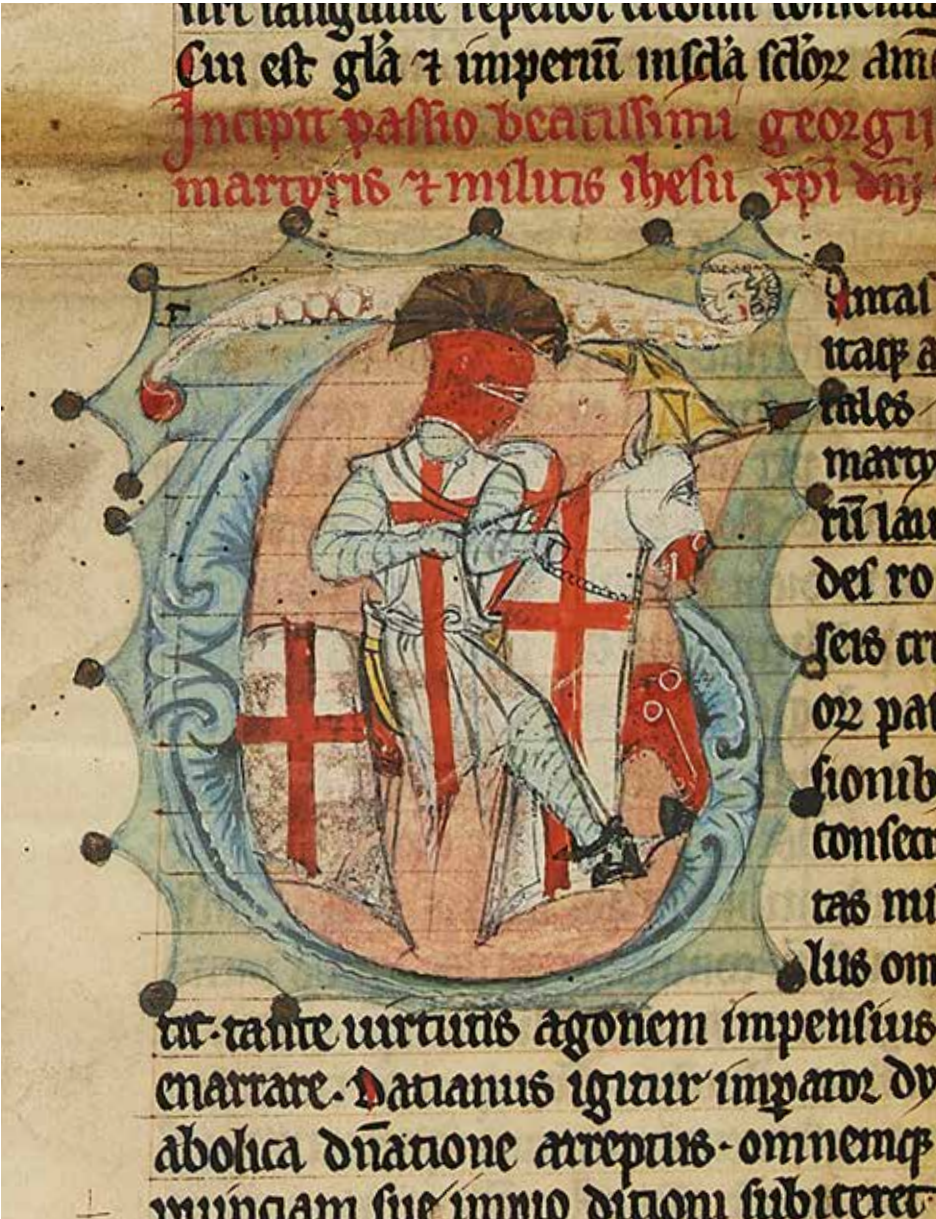 Cui est gl̄a ⁊ imperiū in scl̄a scl̄oꝝ am̄
Incipit passio beatissimi georgii
martyris ⁊ militis ihesu xp̄i dn̄i
itaqꝫ a
tales
marty
rū lau
des ro
seis cri
oꝝ pas
sionib
consecr
tas mi
lus om
tit· tante uirtutis agonem impensius
enarrare. Datianus igitur imꝑator dy
abolica dn̄atione arreptus· omnemqꝫ
ꝓuinciam sue impio ditioni subiceret